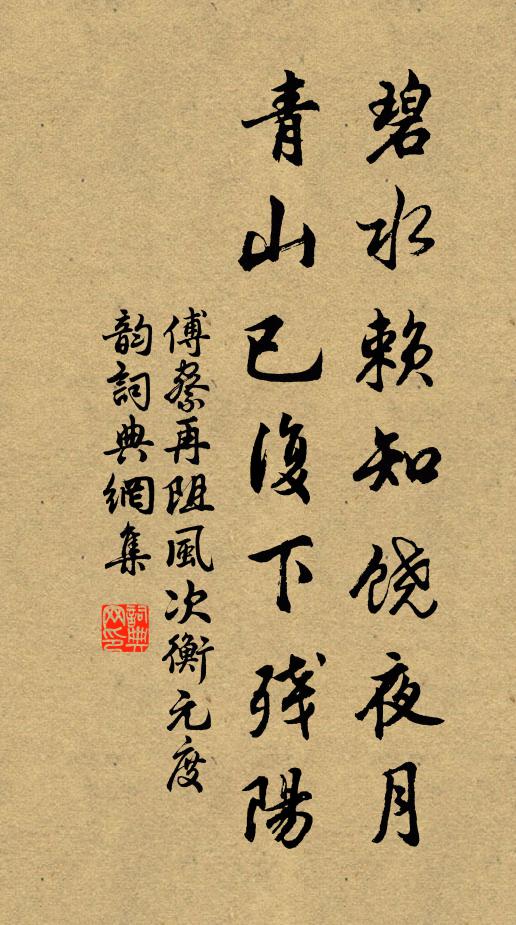 碧水赖知饶夜月
青山已復下残陽
傅察再阻風次衡元度
韵詞典網集
詞典网印